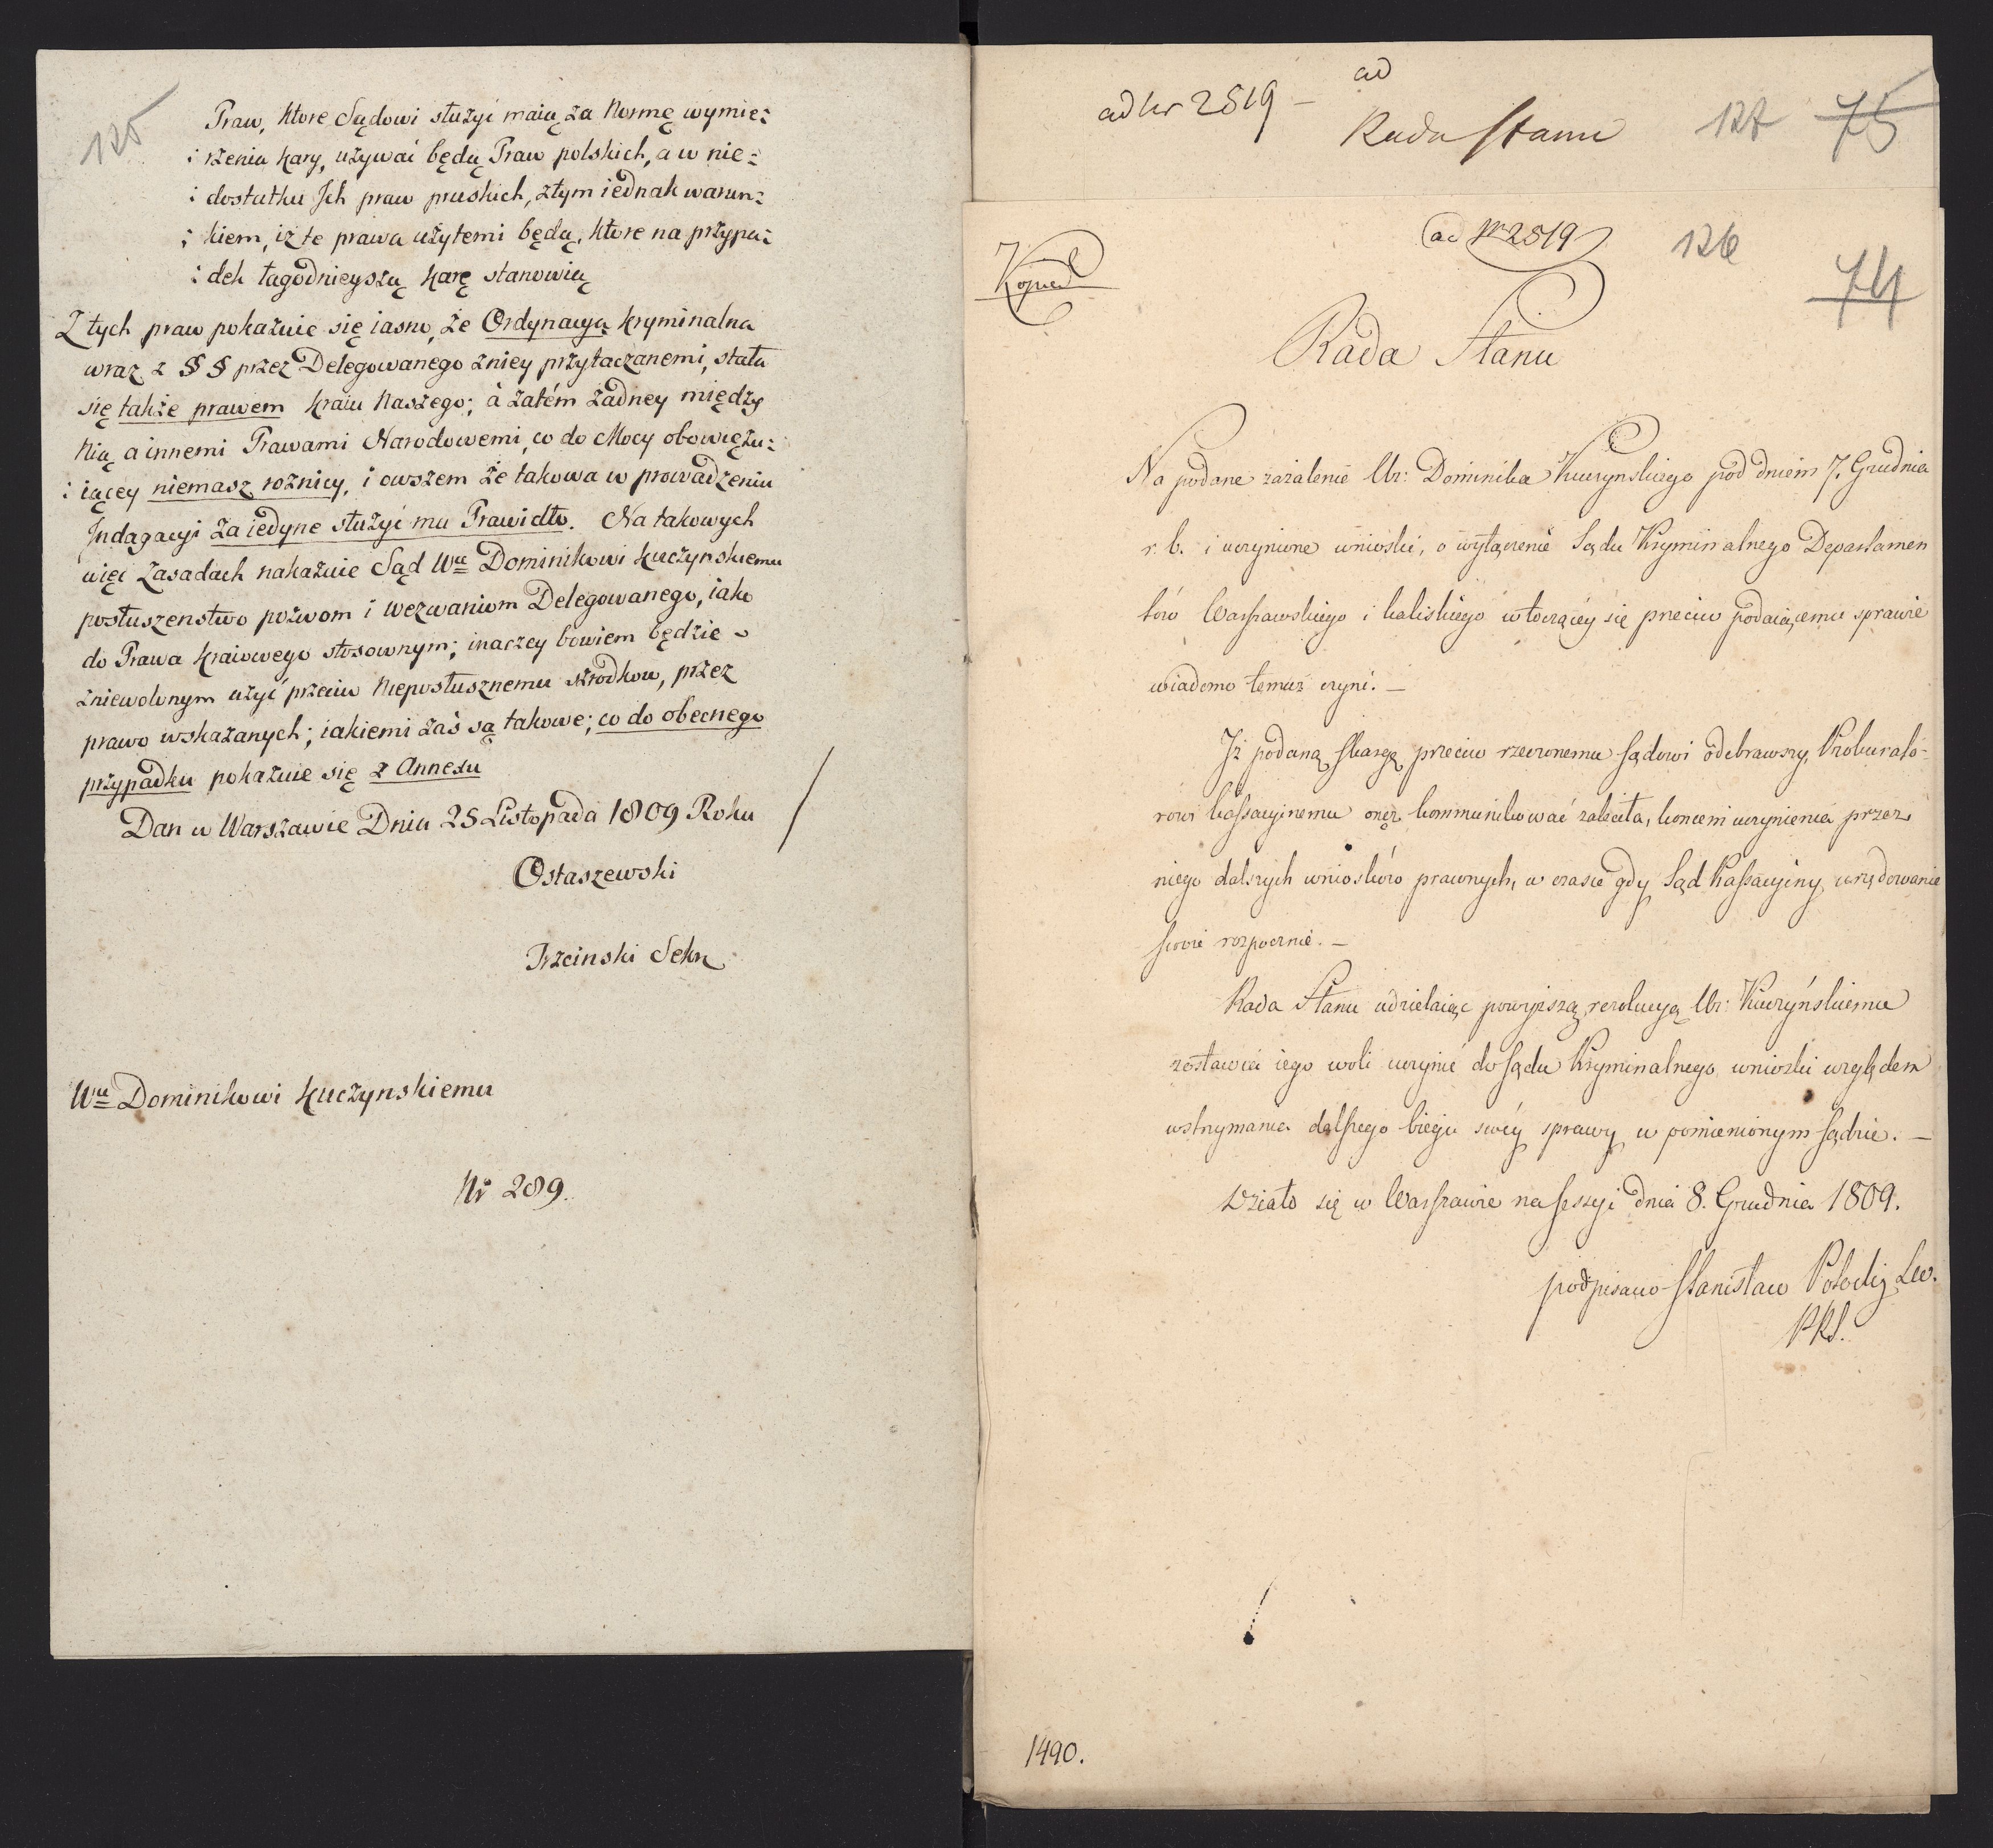 125
Praw, ktore Sądowi służyć maią za Normę wymie:
: rzenia kary, używać będą Praw polskich, a w nie:
: dostatku Jch praw pruskich, z tym iednak warun:
: kiem, iż te prawa użytemi będą, ktore na przypa:
: dek łagodnieyszą karę stanowią
Z tych praw pokazuie się iasno, że Ordynacya kryminalna
wraz z §§ przez Delegowanego zniey przytaczanemi, stała
się także prawem kraiu Naszego; à zatém żadney między
Nią a innemi Prawami Narodowemi, co do Mocy obowięzu:
: iącey niemasz rożnicy, i owszem że takowa w prowadzeniu
Jndagacyi za iedyne służyć mu Prawidło. Na takowych
więc zasadach nakazuie Sąd Wu Dominikowi Kuczynskiemu
posłuszenstwo pozwom i wezwaniom Delegowanego, iako
do Prawa kraiowego stosownym; inaczey bowiem będzie
zniewolonym użyć przeciw Nieposłusznemu szrodkow, przez
prawo wskazanych; iakiemi zaś są takowe; co do obecnego
przypadku pokazuie się z Annexu
Dan w Warszawie Dnia 25 Listopada 1809 Roku
Ostaszewski
Trzcinski Sekr
Wu Dominikowi Kuczynskiemu
Nr 289.
ad Nr 2519 –
ad
Rada Stanu
127
75
Kopia
ad Nr 2519
126
74
Rada Stanu
Na podane zażalenie Ur: Dominika Kuczynskiego pod dniem 7. Grudnia
r. b. i uczynione wnioski, o wyłączenie Sądu Kryminalnego Departamen
tów Warszawskiego i Kaliskiego w toczącéy się przeciw podaiącemu sprawie
wiadomo temuż czyni. –
Jż podaną skargę przeciw rzeczonemu Sądowi odebrawszy, Prokurato-
rowi Kassacyinemu onęż kommunikować zaleciła, koncem uczynienia przez
niego dalszych wniosków prawnych, w czasie gdy Sąd Kassacyiny urzędowanie
swoie rozpocznie. –
Rada Stanu udzielaiąc powyższą rezolucyą Ur: Kuczyńskiemu
zostawia iego woli uczynić do Sądu Kryminalnego wnioski względem
wstrzymania dalszego biegu swéy sprawy w pomienionym Sądzie. –
Działo się w Warszawie na Sessyi dnia 8. Grudnia 1809.
podpisano Stanisław Potocki
PRS.
1490.